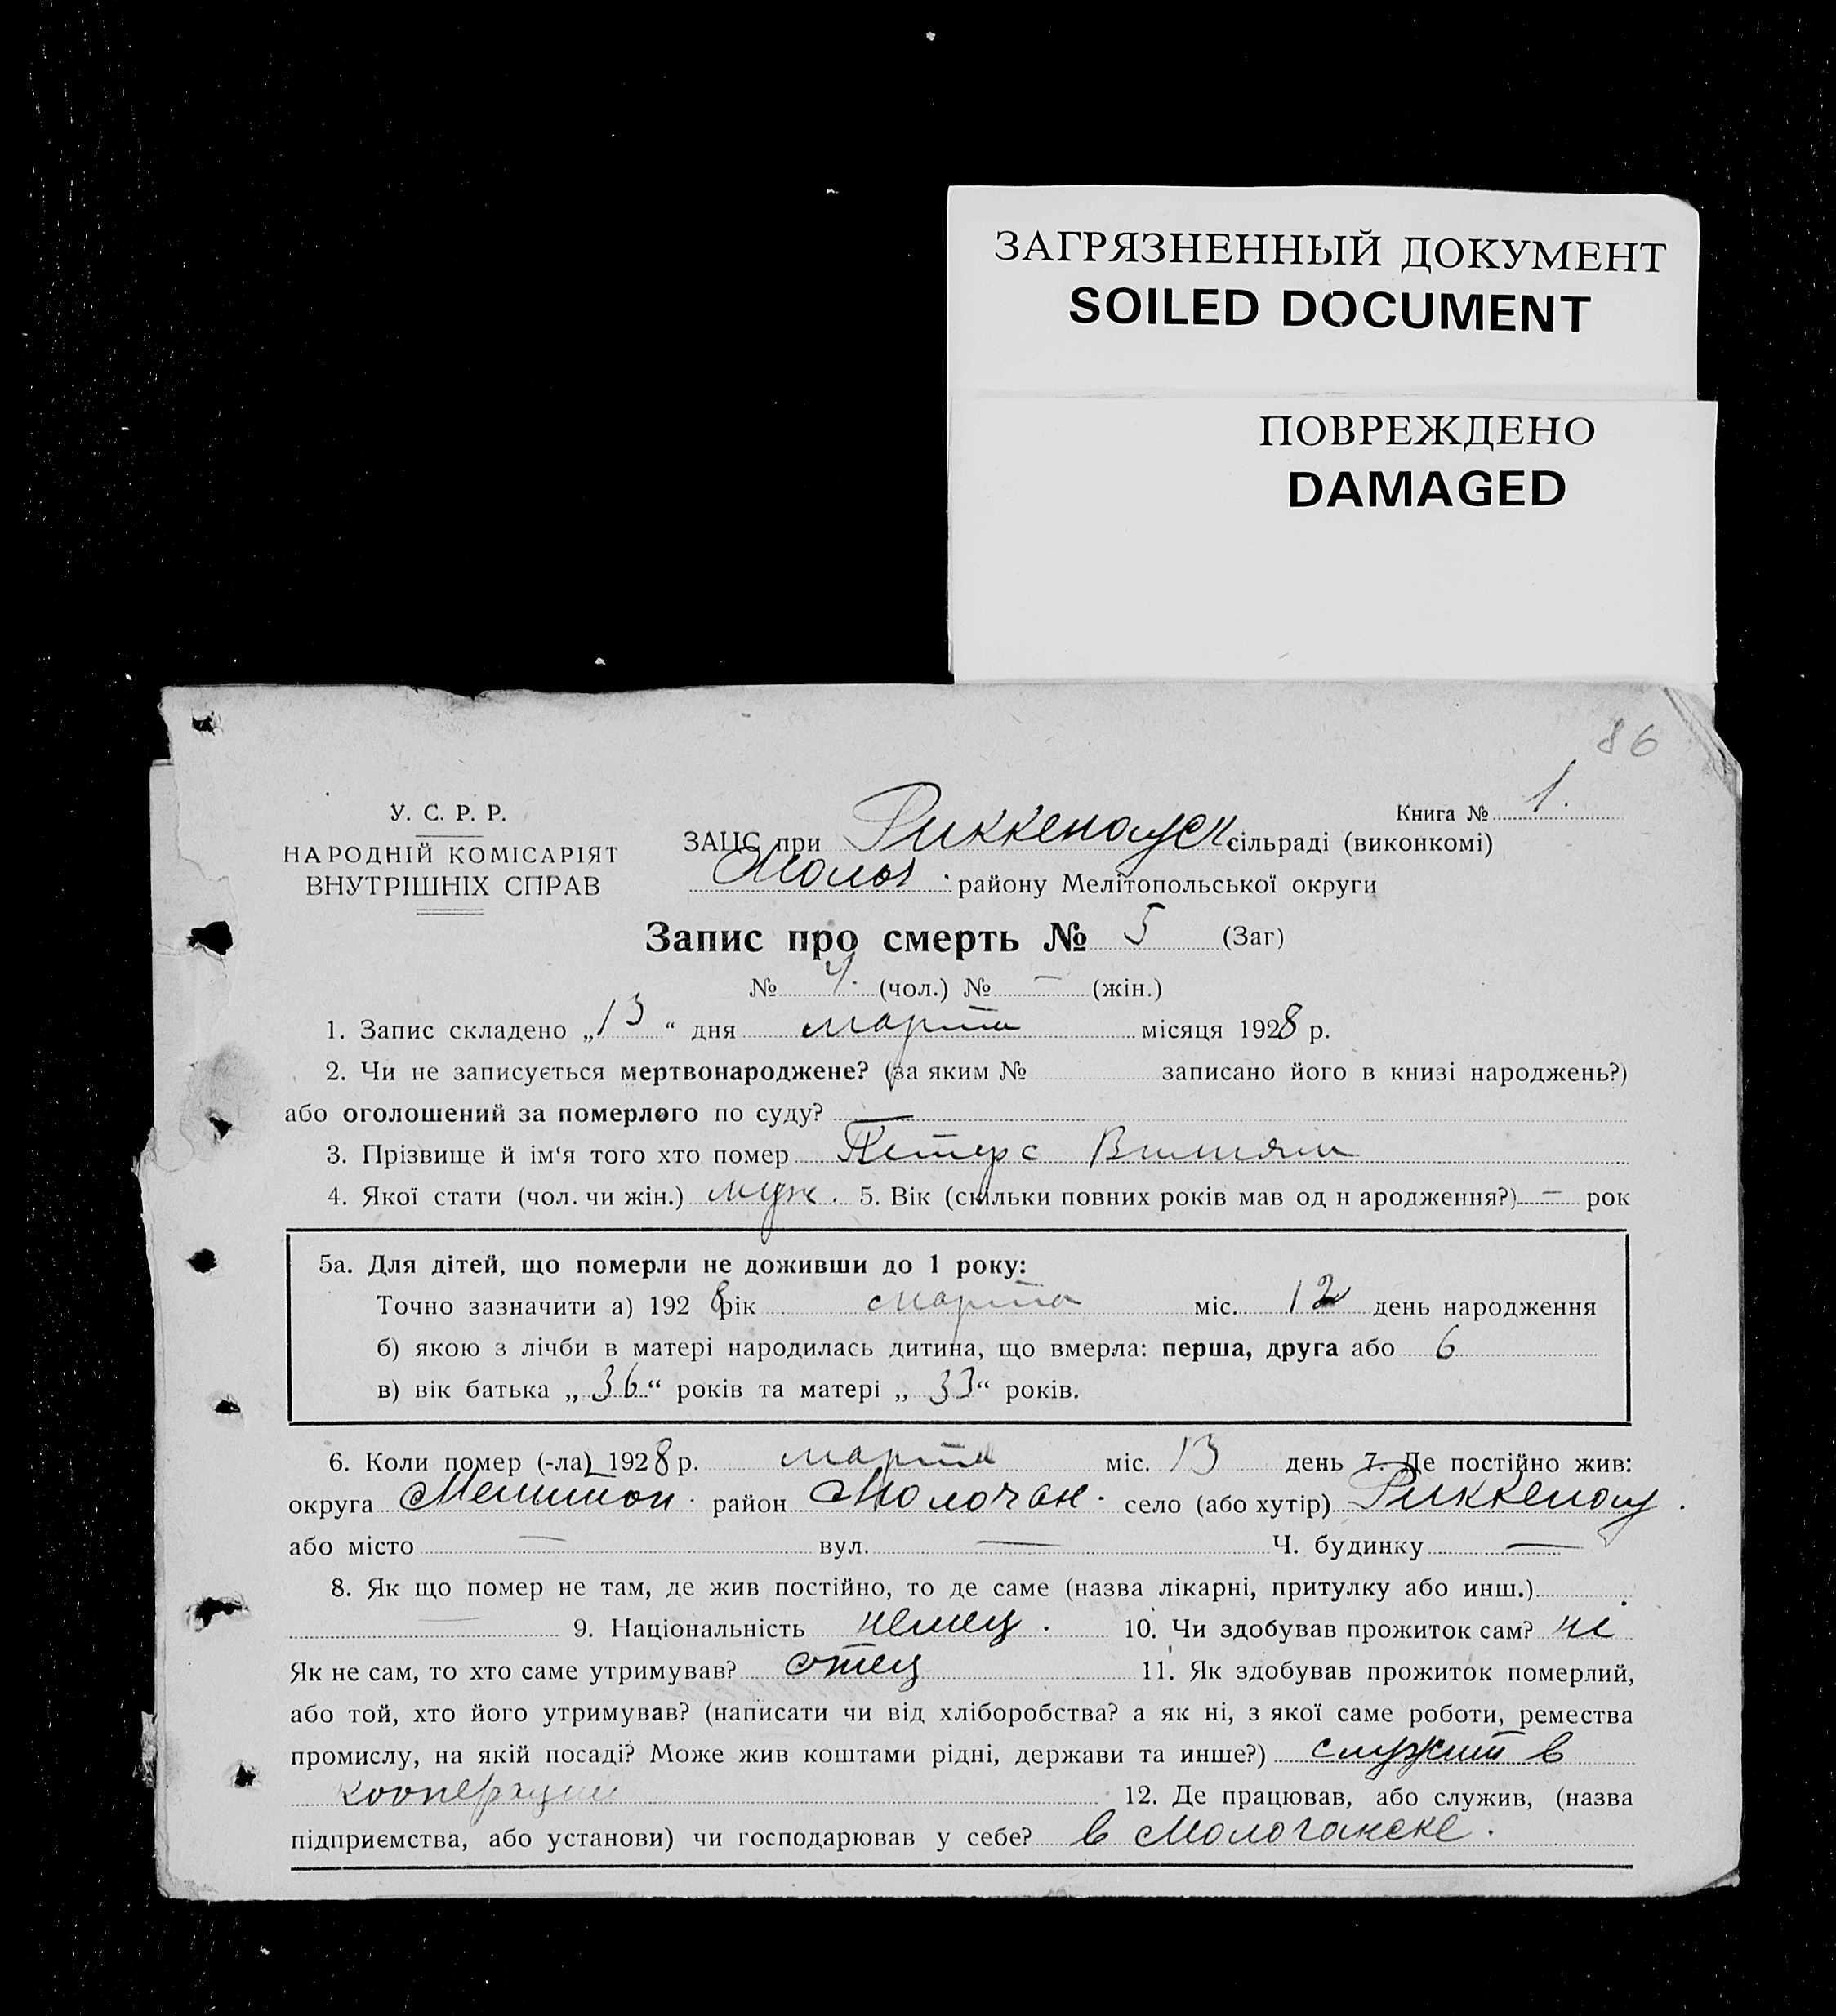 ЗАГРЯЗНЕННЫЙ ДОКУМЕНТ
SOILED DOCUMENT
ПОВРЕЖДЕНО
DAMAGED
86
У. С. Р. Р.
НАРОДНІЙ КОМІСАРІЯТ
ВНУТРІШНІХ СПРАВ
Книга № 1.
ЗАГС при Риккенауск. сільраді (виконкомі)
Молоч. району Мелітопольської округи
Запис про смерть № 5 (Заг)
№ 4. (чол.) № — (жін.)
1. Запис складено „13“ дня марта місяця 1928 р.
2. Чи не записується мертвонароджене? (за яким № записано його в книзі народжень?)
або оголошений за померлого по суду? —
3. Прізвище й ім‘я того хто помер Петерс Вильям
4. Якої стати (чол. чи жін.) муж. 5. Вік (скільки повних років мав од н ародження?) — рок
5а. Для дітей, що померли не доживши до 1 року:
Точно зазначити а) 1928 рік марта міс. 12 день народження
б) якою з лічби в матері народилась дитина, що вмерла: перша, друга або 6
в) вік батька „36“ років та матері „33“ років.
6. Коли помер (-ла) 1928 р. марта міс. 13 день 7. Де постійно жив:
округа Мелитоп. район Молочан. село (або хутір) Риккенау.
або місто — вул. — Ч. будинку —
8. Як що помер не там, де жив постійно, то де саме (назва лікарні, притулку або инш.)
— 9. Національність немец. 10. Чи здобував прожиток сам? не
Як не сам, то хто саме утримував? отец 11. Як здобував прожиток померлий,
або той, хто його утримував? (написати чи від хліборобства? а як ні, з якої саме роботи, ремества
промислу, на якій посаді? Може жив коштами рідні, держави та инше?) служит в
кооперации 12. Де працював, або служив, (назва
підприємства, або установи) чи господарював у себе? в Молочанске.